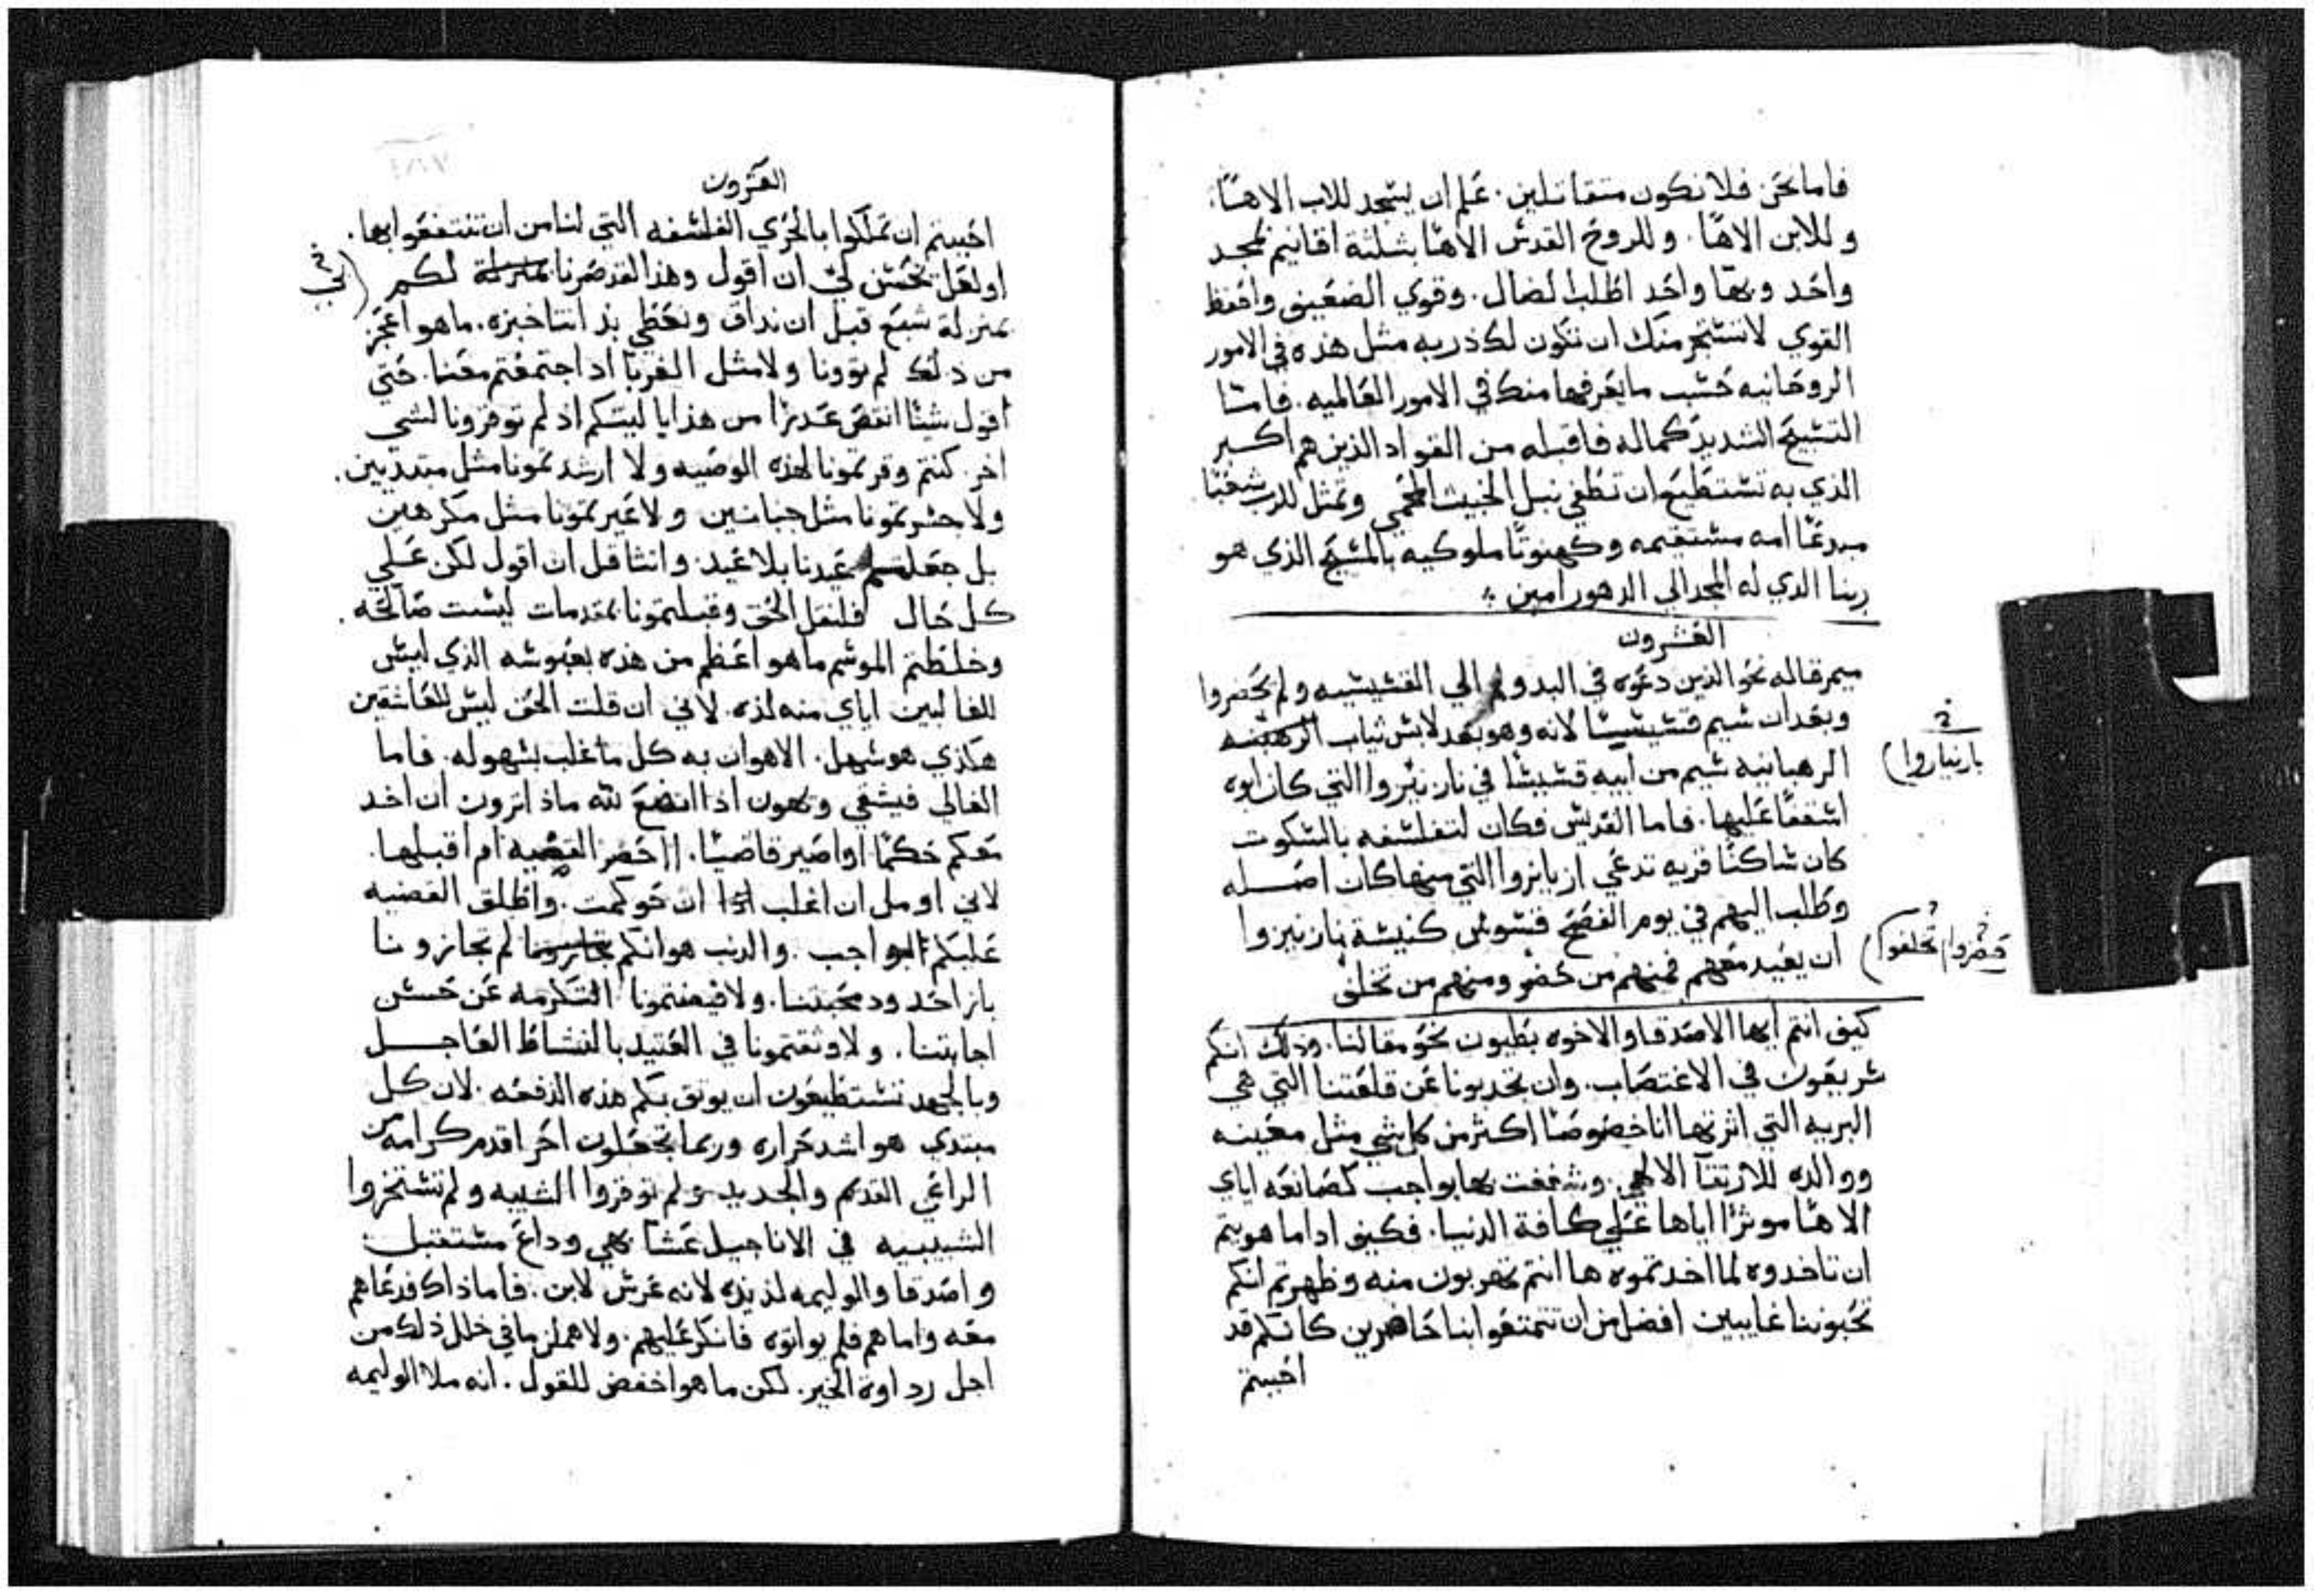 فاما نحن فلا نكون متقاتلين. علم ان يسجد للاب الاهًا.
وللابن الاهًا. وللروح القدس الاهًا بثلثة اقانيم لمجد
واحد وبها واحد اطلب الضال. وقوي الضعيف واحفظ
القوي لانستجر منك ان تكون لك دربه مثل هذه في الامور
الروحانيه حسب مايعرفها منك في الامور العالميه. فاما
التسيح الشديد كماله فاقبله من القواد الذين هم اكبر
الذي به تستطيع ان تطفي نبل الخبيث المحمي وتمثل للرب شعبًا
مبدعًا امه مستقيمه وكهنوتًا ملوكيه بالمسيح الذي هو
ربنا الذي له المجد الي الدهور امين
العشرون
ميمر قاله نحو الذين دعوه في البدو الي القسيسيه ولم يحضروا
وبعد ان سيم قسيسًا لانه وهو بعد لابس ثياب
الرهبانيه سيم من ابيه قسيسًا في نازنيزوا التي كان ابوه
اسقفًا عليها. فاما القديس فكان لتفلسفه بالسكوت
كان ساكنًا قريه تدعي ازيانزوا التي منها كان اصله
وطلب اليهم في يوم الفصح قسوس كنيسة نازنيزوا
ان يعيد معهم فمنهم من حضر ومنهم من تخلف
نازينازوا)
حضروا تخلفوا)
كيف انتم ايها الاصدقا والاخوه بطيون نحو مقالنا. وذلك انكم
سريعون في الاغتصاب. وان تجدبونا عن قلعتنا التي هي
البريه التي اثرتها انا خصوصًا اكثر من كل شي مثل معينه
ووالده للارتقا الالهي. وشغفت بها بواجب كصانعه اياي
الاهًا موثرًا اياها علي كافة الدنيا. فكيف اداما هويتم
ان تاخدوه لما اخدتموه ها انتم تهربون منه وظهرتم انكم
تحبوننا غايبين افضل من ان تتمتعوا بنا حاضرين كانكم قد
احببتم
العشرون
احببتم ان تملكوا بالحري الفلسفه التي لنا من ان تنتفعوا بها.
اولعل تحسن لي ان اقول وهذا القد صرنا بمنزلة لكم (لي
بمنزلة شبع قبل ان نداق ونعطي بذ انتا خبزه. ماهو اعجز
من دلك لم توونا ولا مثل الغربا اد اجتمعتم معنا. حتي
اقول شيئًا انقص عدرًا من هذا يا ليتكم اذ لم توقرونا لشي
اخر. كنتم وقرتمونا لهذه الوصيه ولا ارشدتمونا مثل مبتديين.
ولا جسرتمونا مثل جبانين ولا عيرتمونا مثل مكرهين
بل جعلتم عيدنا بلا عيد. وانثاقل ان اقول لكن علي
كل حال فلنقل الحق وقبلتمونا بمقدمات ليست صالحه.
وخلطتم الموسم ماهو اعظم من هذه بعبوسه الذي ليس
للغالبين اياي منه لذه. لاني ان قلت الحق ليس للعاشقين
هكذي هو سهل. الاهوان به كل ما غلب بسهوله. فاما
الغالي فيشقي ويهون اذا اتضع لله ماذ اترون ان اخد
معكم حكمًا او اصير قاضيًا. احضر القضيه ام اقبلها.
لاني او مل ان اغلب اذا ان حوكمت. واطلق القضيه
عليكم بواجب. والدنب هو انكم لم تجازونا
باز احد ود محبتنا. ولا قيضتمونا التكرمه عن حسن
اجابتنا. ولا وثقتمونا في العتيد بالنشاط العاجل
وبالجهد تستطيعون ان يوثق بكم هذه الدفعه. لان كل
مبتدي هو اشد حراره وربما تجعلون اخر اقدم كرامه من
الراعي القديم والجديد ولم توقروا الشيبه ولم تستخزوا
الشبيبيه في الاناجيل عشا بهي وداع مستقبل
واصدقا والوليمه لذيذه لانه عرس لابن. فاما ذاك فدعاهم
معه واما هم فلم يواتوه فانكر عليهم. ولا همل ما في خلل ذلك من
اجل رداوة الخبر. لكن ما هو اخفض للقول. انه ملا الوليمه